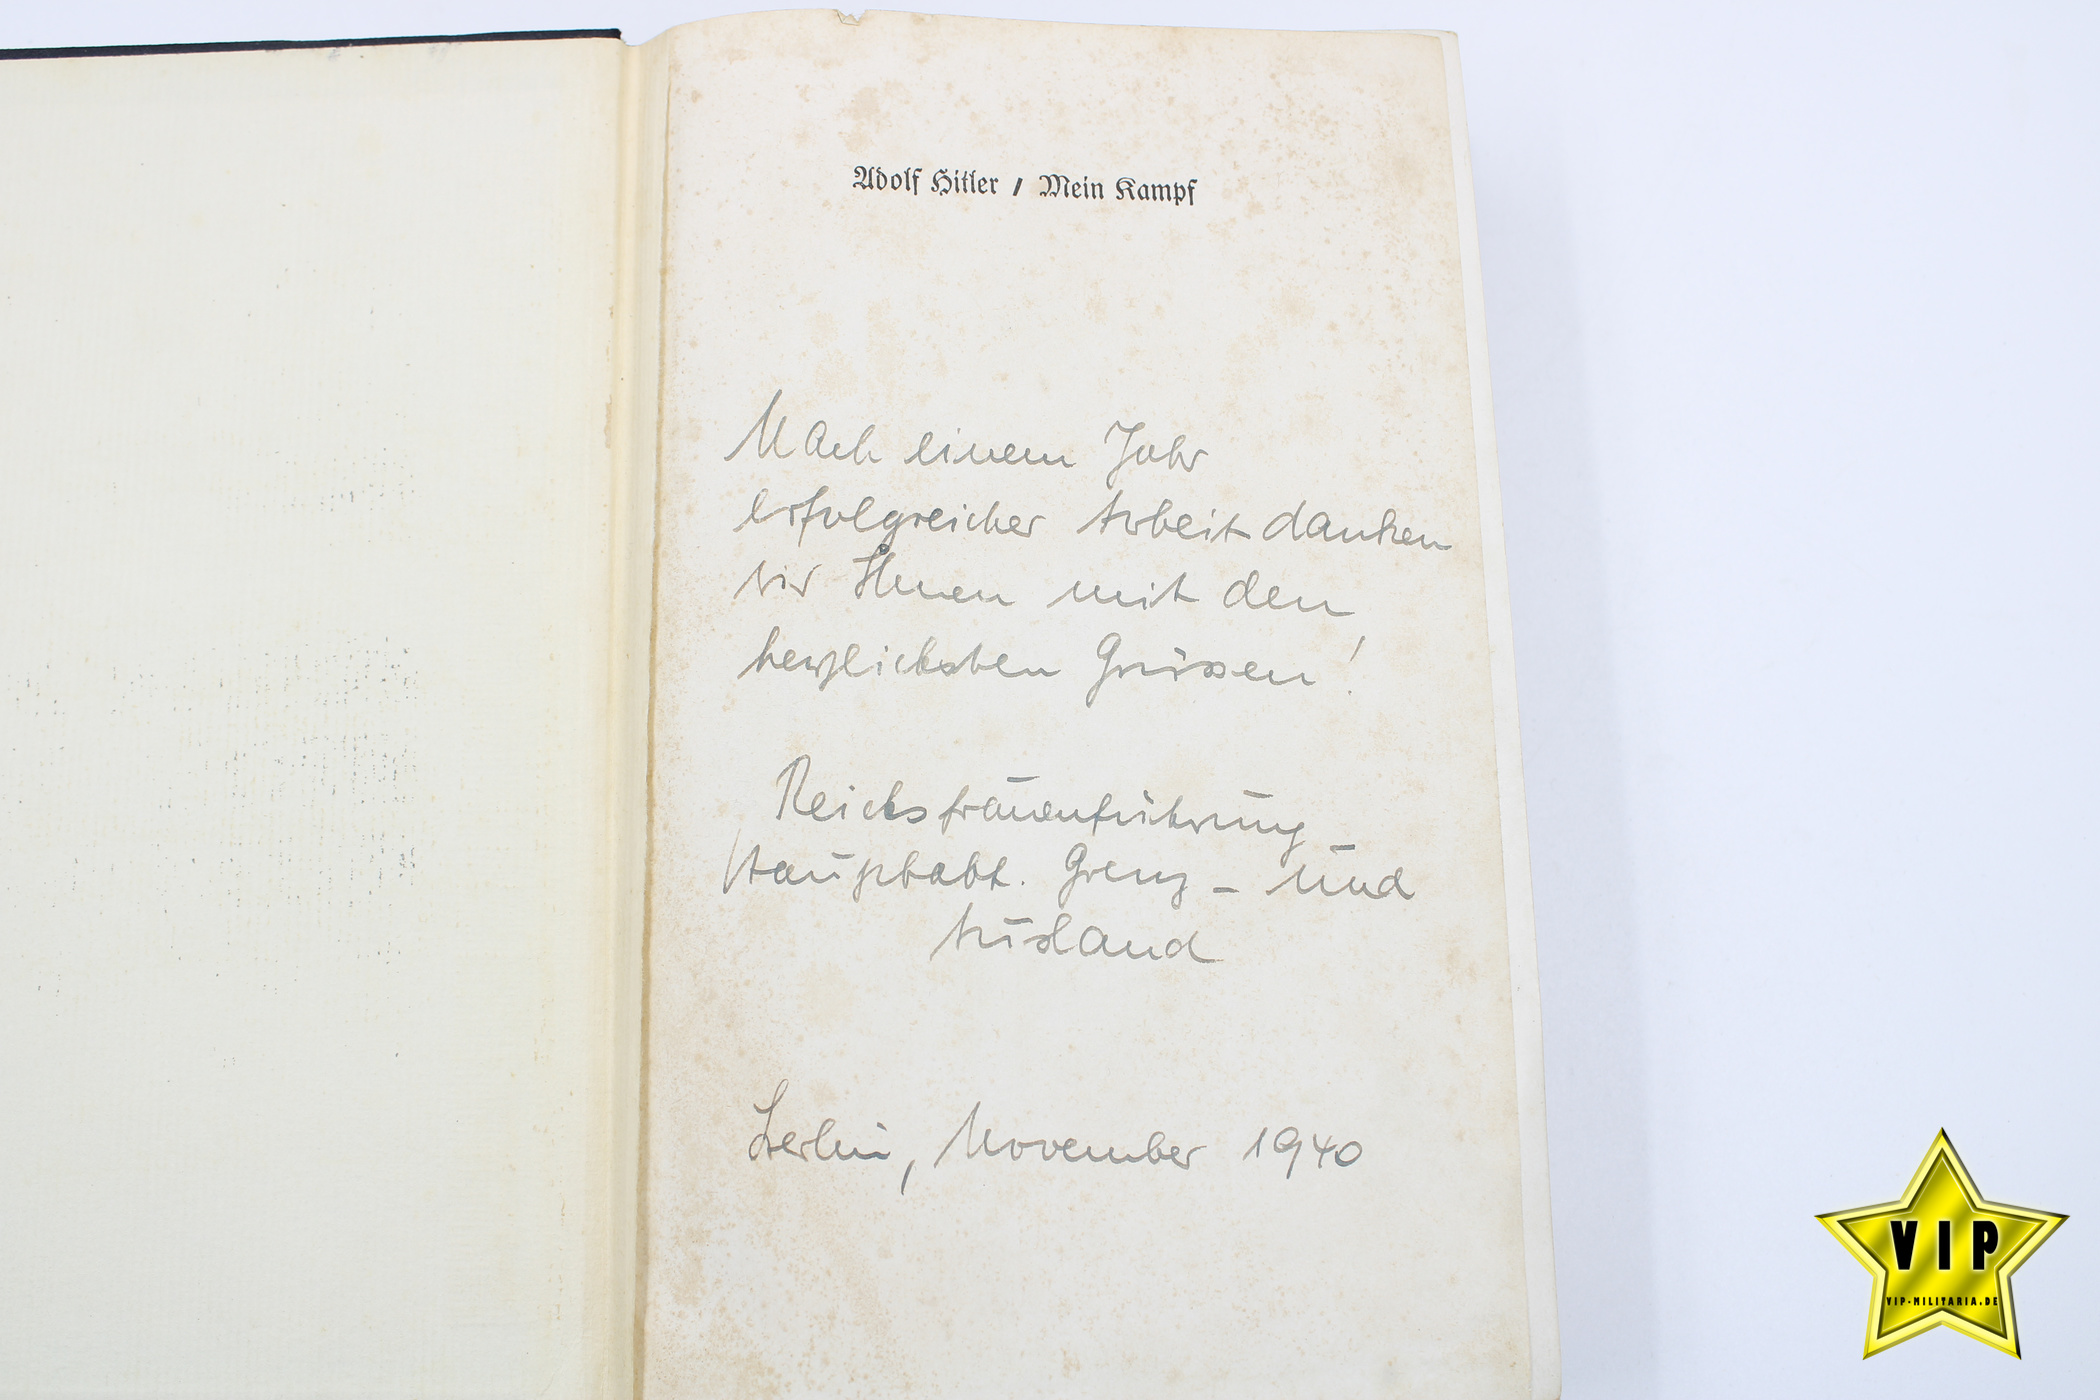 Adolf Hitler / Mein Kampf
Nach einem Jahr
erfolgreicher Arbeit danken
wir Ihnen mit den
herzlichsten Grüssen!
Reichsfrauenführung
Hauptabt. Grenz- und
Ausland
Berlin, November 1940
VIP
VIP-MILITARIA.DE